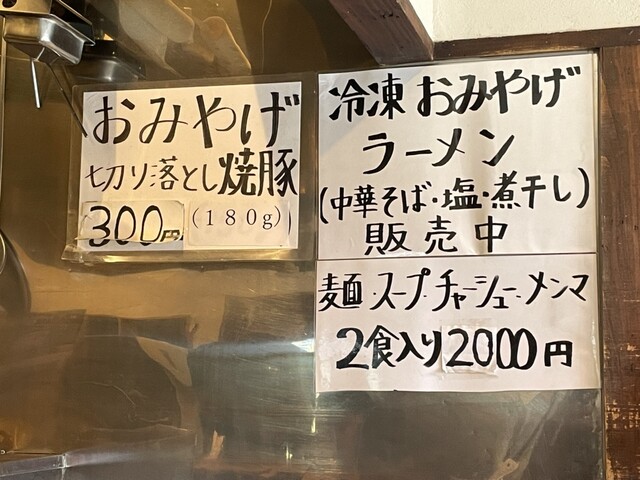 おみやげ
切り落とし焼豚
300円(180g)
冷凍おみやげ
ラーメン
(中華そば・塩・煮干し)
販売中
麺・スープ・チャーシュー・メンマ
2食入り2000円